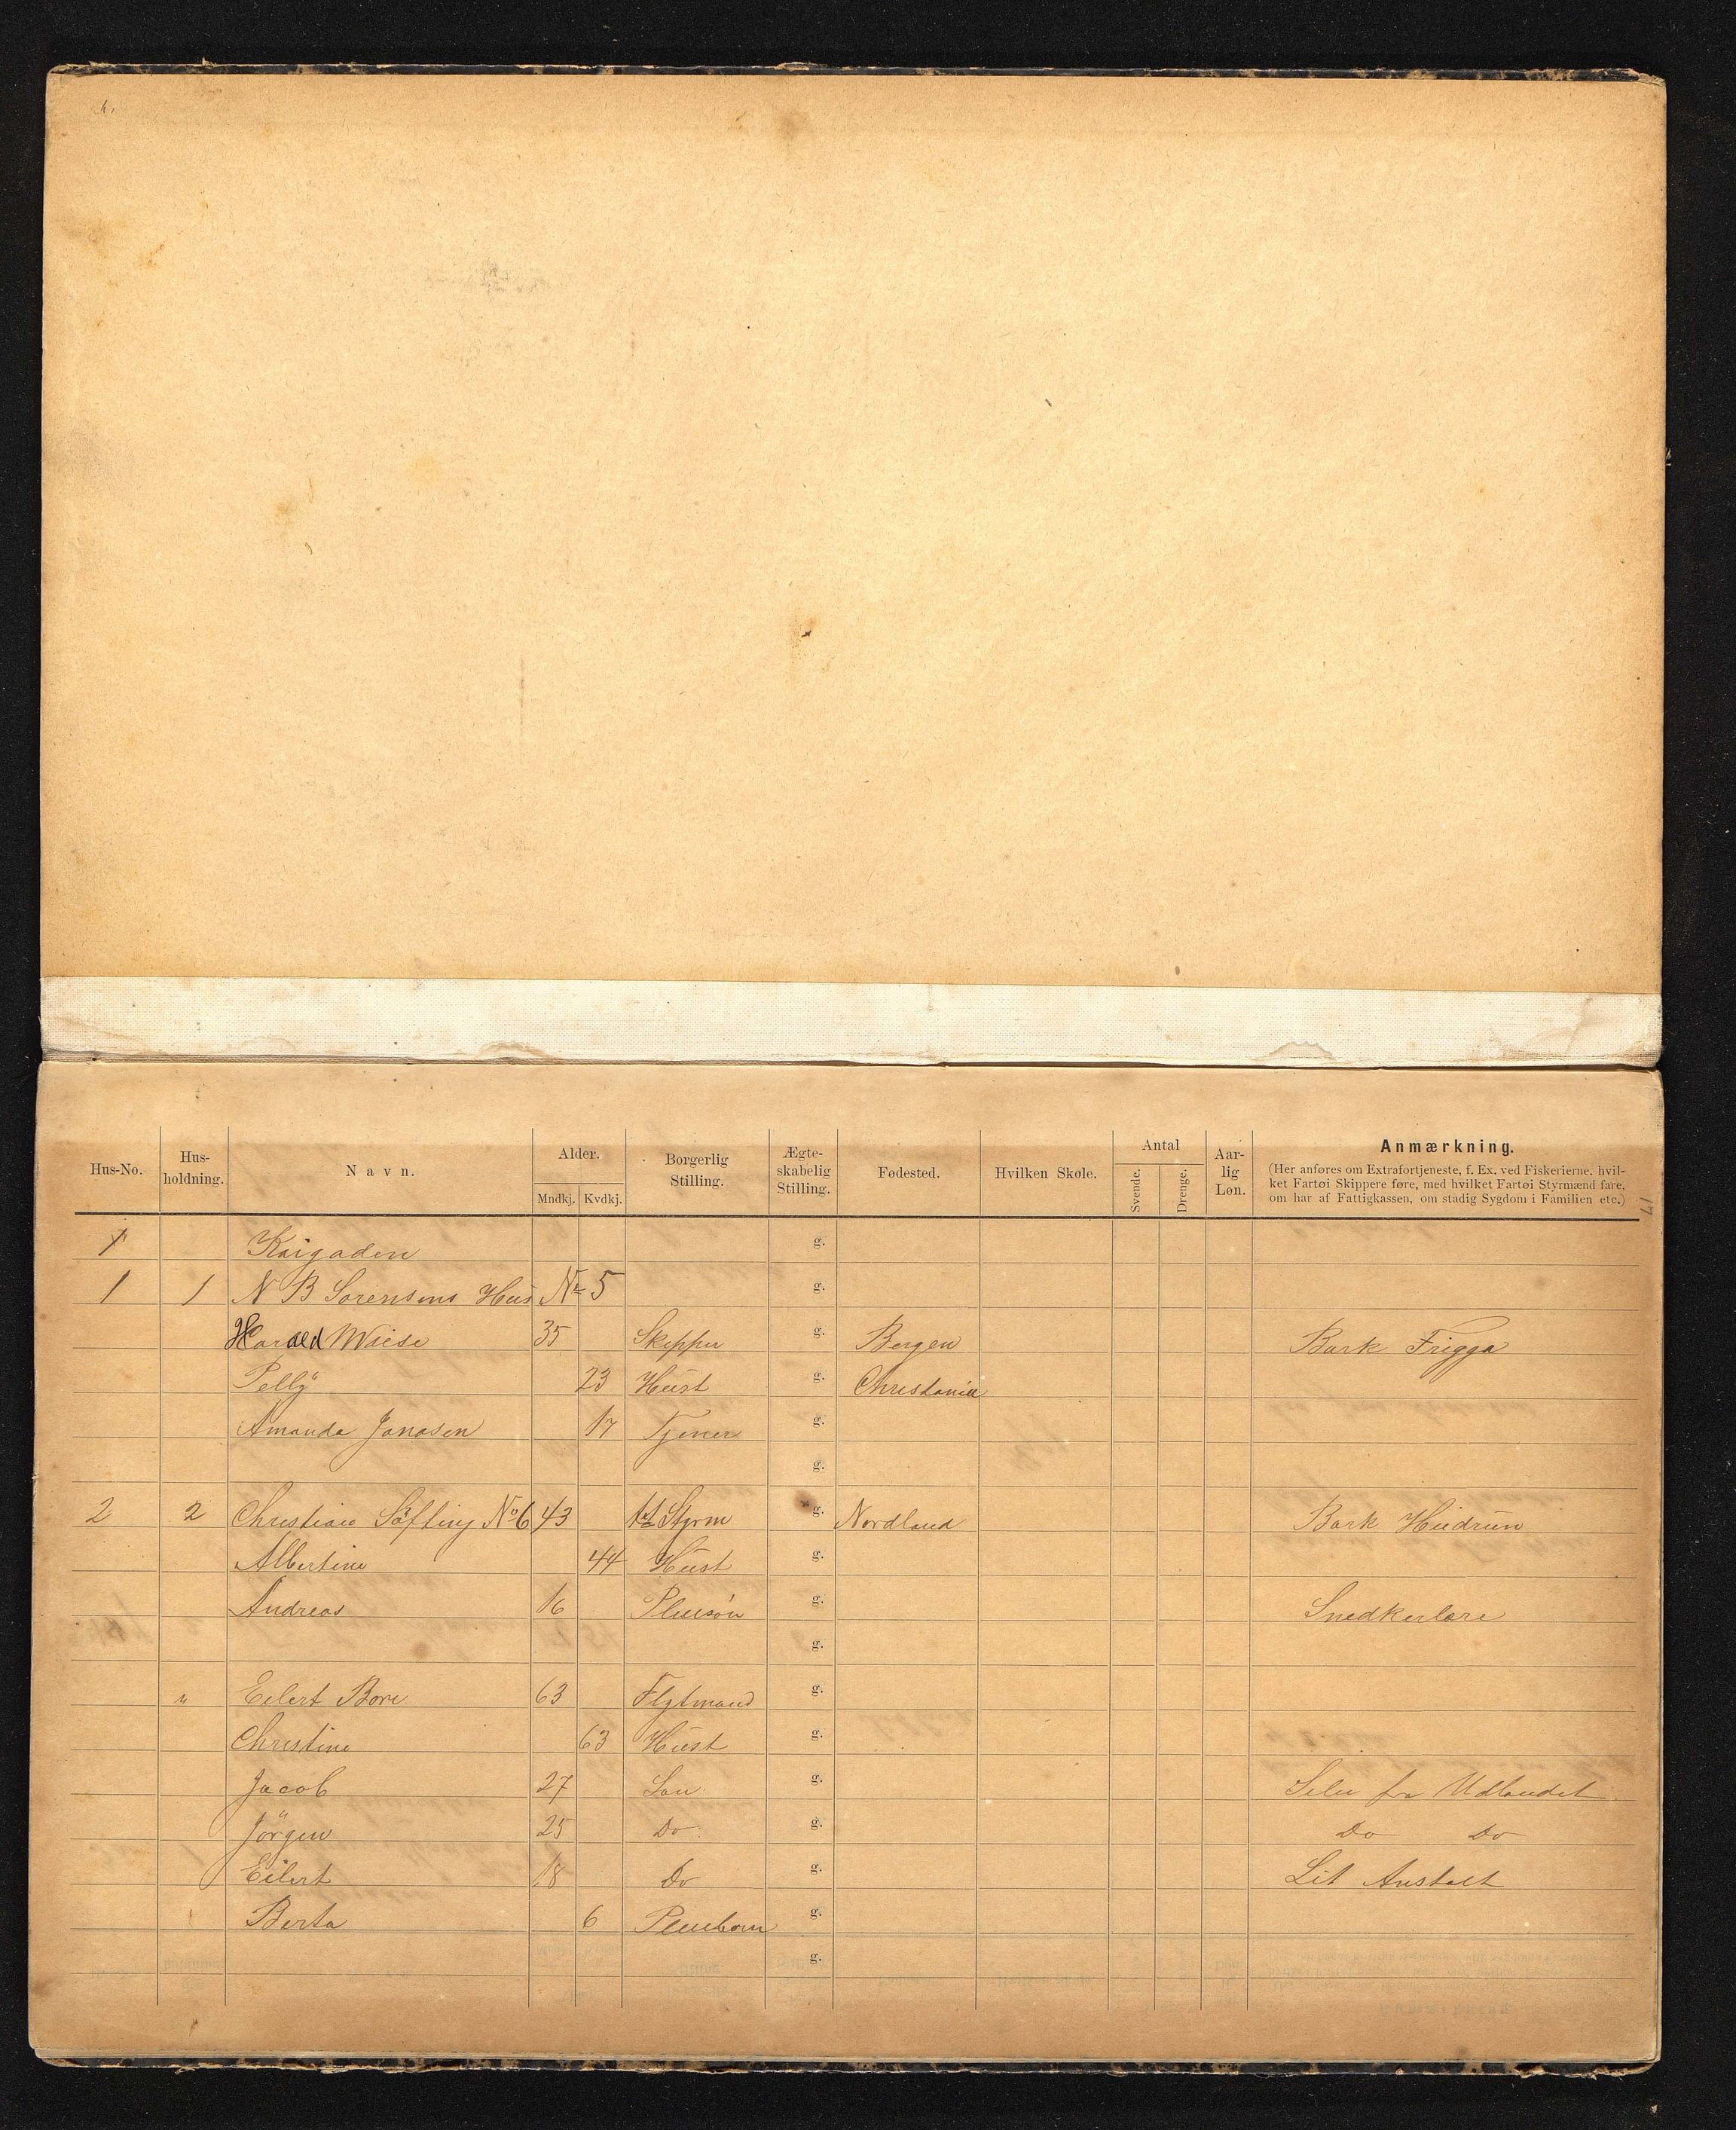 Hus-No. Hus-holdning. Navn. Alder. Mndkj. Kvdkj. Borgerlig Stilling. Ægte-skabelig Stilling. Fødested. Hvilken Skole. Antal Svende. Drenge. Aar-lig Løn. Anmærkning.
(Her anføres om Extrafortjeneste, f. Ex. ved Fiskerierne, hvil-
ket Fartøi Skippere føre, med hvilket Fartøi Styrmænd fare,
om har af Fattigkassen, om stadig Sygdom i Familien etc.)
1 Kaigaden g.
1 1 N B Sorensens Hus No 5 g.
Harald Wiese 35 Skipper g. Bergen Bark Frigga
Pelly 23 Hust g. Christania
Amanda Janasen 17 Tjener g.
g.
2 2 Christian Söfting No 6 43 1st Styrm g. Nordland Bark Hudrun
Albertine 44 Hust g.
Andreas 16 Pleiesön g. Snedkerlære
g.
" Eilert Bore 63 Flytmand g.
Christine 63 Hust g.
Jacob 27 Sön g. fra Udlandet
Jörgen 25 Do g. Do Do
Eilert 18 Do g. Lit Anstalt
Berta 6 Pleiebarn g.
g.